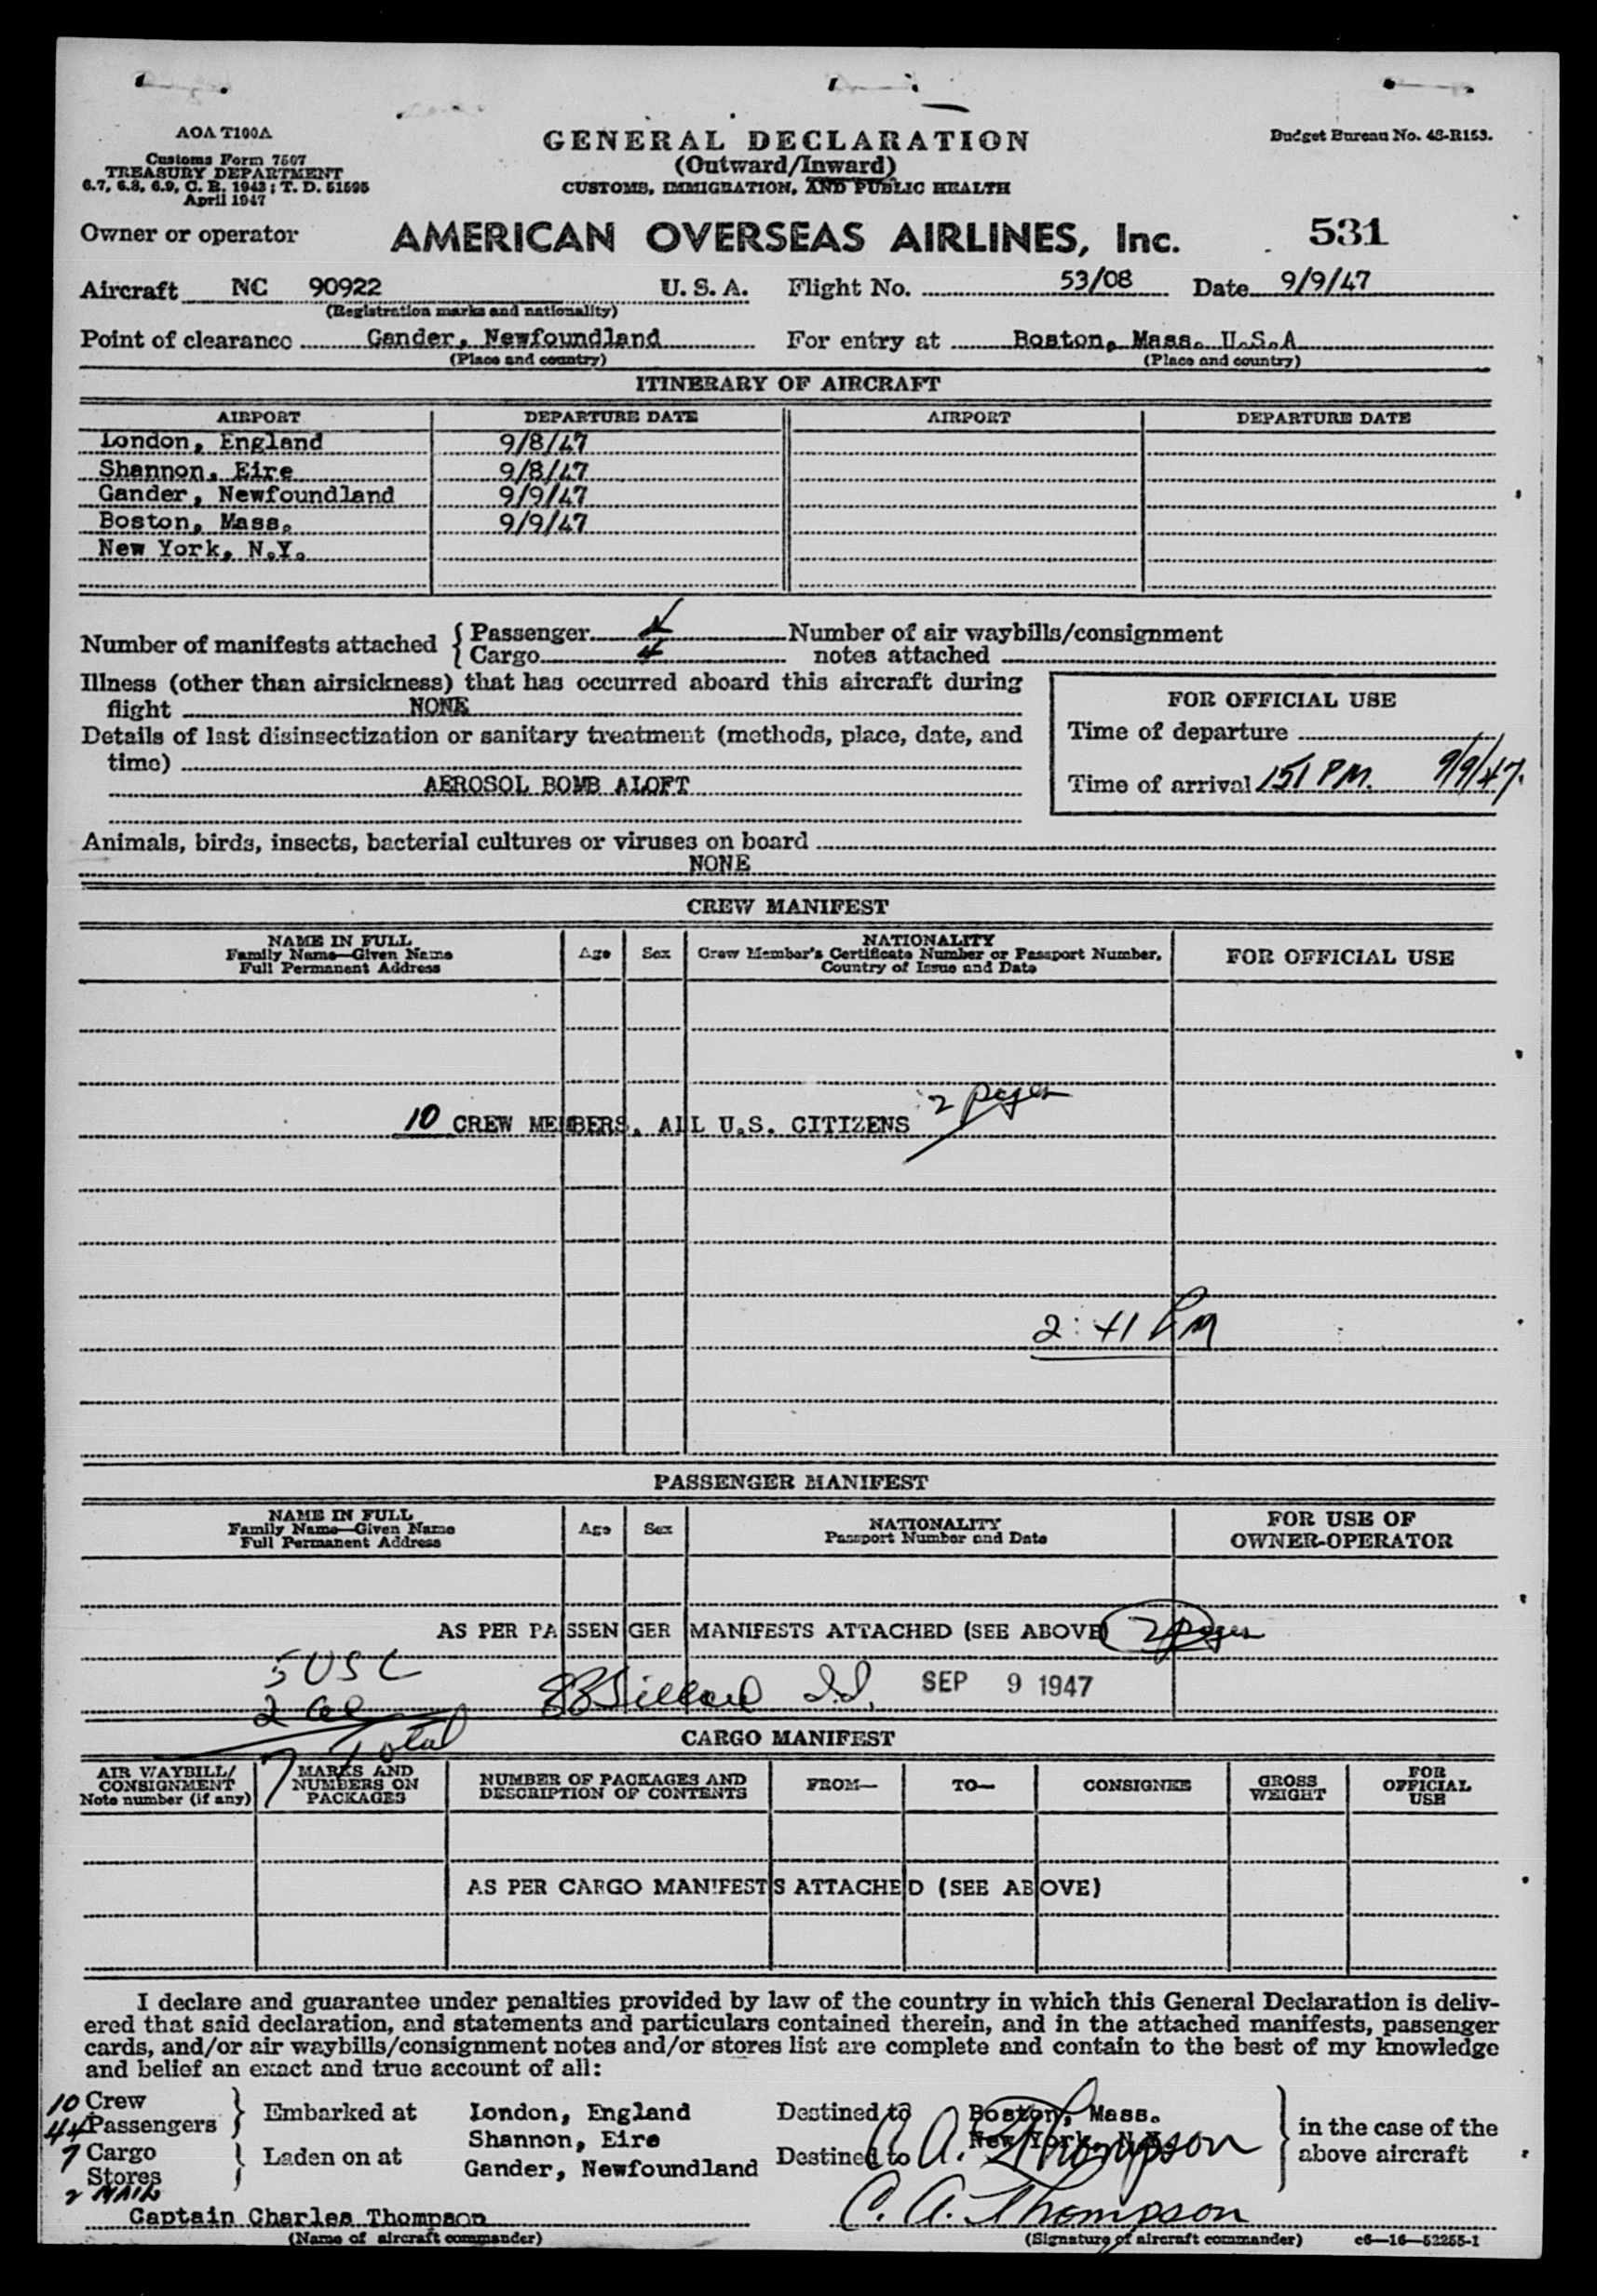 AOA T100A
Customs Form 7507
TREASURY DEPARTMENT
6.7, 6.8, 6.9, C. R. 1943; T. D. 51595
April 1947
GENERAL DECLARATION
(Outward/Inward)
CUSTOMS, IMMIGRATION, AND PUBLIC HEALTH
Budget Bureau No. 48-R153.
Owner or operator AMERICAN OVERSEAS AIRLINES, Inc. 531
Aircraft NC 90922 U. S. A. Flight No. 53/08 Date 9/9/47
(Registration marks and nationality)
Point of clearance Gander, Newfoundland For entry at Boston, Mass. U.S.A
(Place and country) (Place and country)
ITINERARY OF AIRCRAFT
AIRPORT DEPARTURE DATE AIRPORT DEPARTURE DATE
London, England 9/8/47
Shannon, Eire 9/8/47
Gander, Newfoundland 9/9/47
Boston, Mass. 9/9/47
New York, N.Y.
Number of manifests attached { Passenger Number of air waybills/consignment
Cargo 4 notes attached
Illness (other than airsickness) that has occurred aboard this aircraft during
flight NONE
Details of last disinsectization or sanitary treatment (methods, place, date, and
time)
AEROSOL BOMB ALOFT
FOR OFFICIAL USE
Time of departure
Time of arrival 151 PM. 9/9/47.
Animals, birds, insects, bacterial cultures or viruses on board
NONE
CREW MANIFEST
NAME IN FULL
Family Name—Given Name
Full Permanent Address
Age Sex
NATIONALITY
Crew Member's Certificate Number or Passport Number,
Country of Issue and Date
FOR OFFICIAL USE
10 CREW MEMBERS, ALL U.S. CITIZENS 2 pages
2:41 PM
PASSENGER MANIFEST
NAME IN FULL
Family Name—Given Name
Full Permanent Address
Age Sex
NATIONALITY
Passport Number and Date
FOR USE OF
OWNER-OPERATOR
AS PER PASSENGER MANIFESTS ATTACHED (SEE ABOVE) 2 pages
5 USC
2 SEP 9 1947
7 Total
CARGO MANIFEST
AIR WAYBILL/
CONSIGNMENT
Note number (if any)
MARKS AND
NUMBERS ON
PACKAGES
NUMBER OF PACKAGES AND
DESCRIPTION OF CONTENTS
FROM— TO— CONSIGNEE
GROSS
WEIGHT
FOR
OFFICIAL
USE
AS PER CARGO MANIFESTS ATTACHED (SEE ABOVE)
I declare and guarantee under penalties provided by law of the country in which this General Declaration is deliv-
ered that said declaration, and statements and particulars contained therein, and in the attached manifests, passenger
cards, and/or air waybills/consignment notes and/or stores list are complete and contain to the best of my knowledge
and belief an exact and true account of all:
10 Crew
44 Passengers } Embarked at London, England Destined to Boston, Mass.
Shannon, Eire New York, N.Y.
7 Cargo } Laden on at Gander, Newfoundland Destined to
Stores
2 MAIL
in the case of the
above aircraft
C A. Thompson
Captain Charles Thompson C. A. Thompson
(Name of aircraft commander) (Signature of aircraft commander) c6—16—52255-1